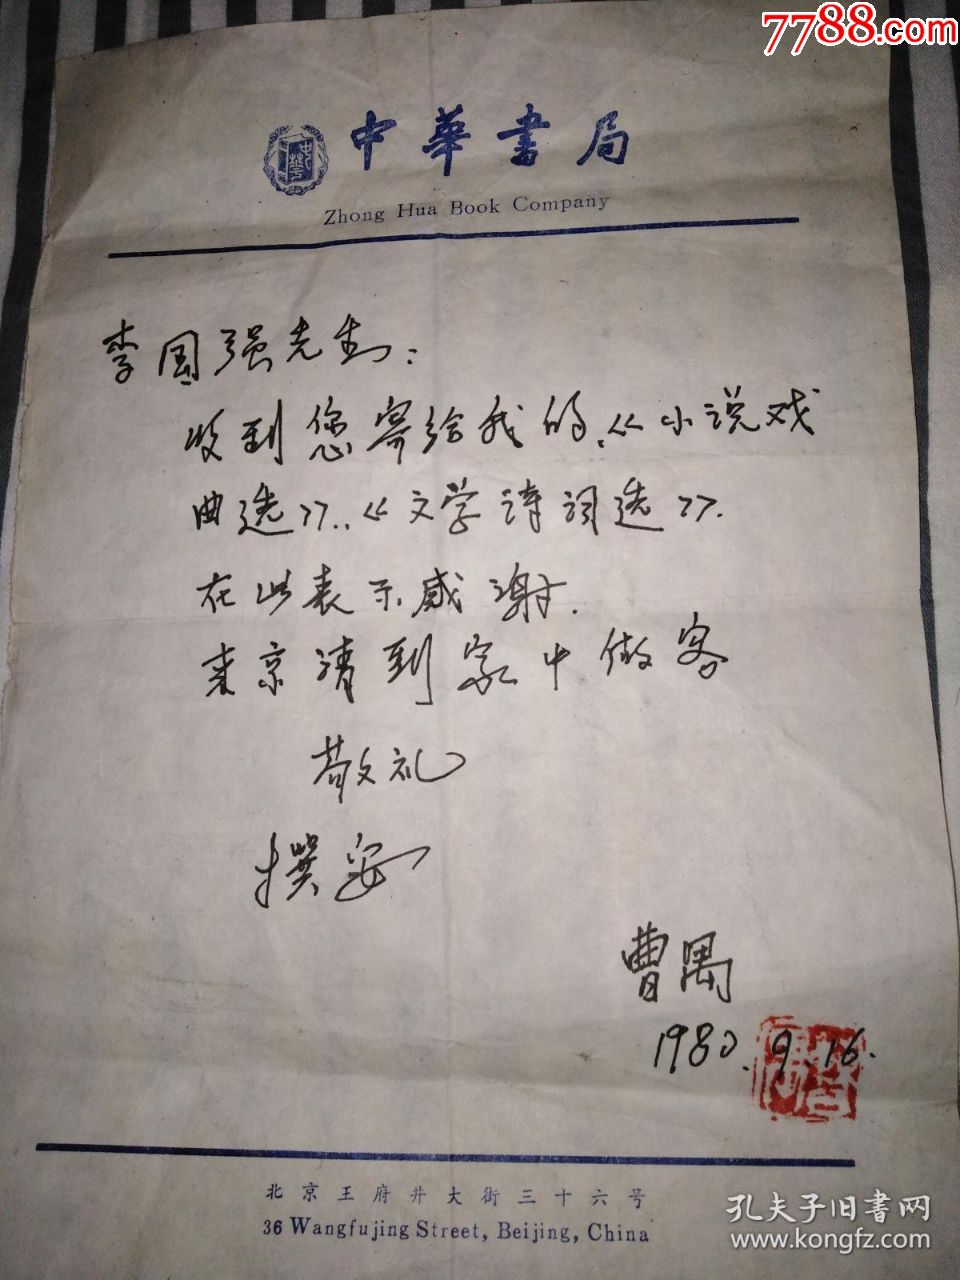 7788.com
中華書局
Zhong Hua Book Company
李国强先生：
收到您寄给我的《小说戏
曲选》..《文学诗词选》.
在此表示感谢.
来京请到家中做客
敬礼
撰安
曹禺
1980.9.16.
北京王府井大街三十六号
36 Wangfujing Street, Beijing, China
孔夫子旧书网
www.kongfz.com